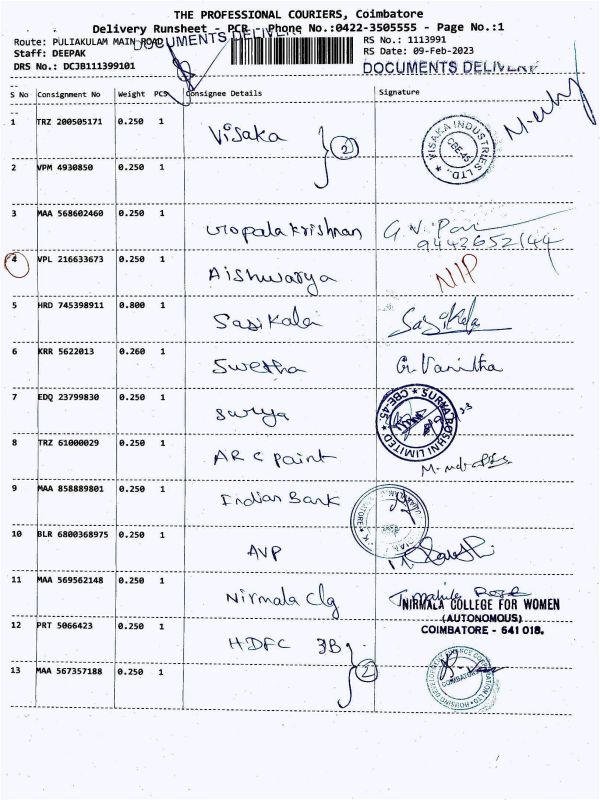 THE PROFESSIONAL COURIERS, Coimbatore
Delivery Runsheet - PCR - Phone No.:0422-3505555 - Page No.:1
Route: PULIAKULAM MAIN ROAD
DOCUMENTS DELIVERY
RS No.: 1113991
Staff: DEEPAK
RS Date: 09-Feb-2023
DRS No.: DCJB111399101
DOCUMENTS DELIVERY
S No Consignment No Weight PCS Consignee Details Signature
1 TRZ 200505171 0.250 1 Visaka 2
VISAKA INDUSTRIES LTD., CBE-45
2 VPM 4930850 0.250 1
3 MAA 568602460 0.250 1 Gopalakrishnan
9442652144
4 VPL 216633673 0.250 1 Aishwarya NIP
5 HRD 745398911 0.800 1 Sasikala Sasikala
6 KRR 5622013 0.260 1 Swetha G. Vanitha
7 EDQ 23799830 0.250 1 Surya
SURYA ROSHNI LIMITED CBE-45
8 TRZ 61000029 0.250 1 ARC Paint
9 MAA 858889801 0.250 1 Indian Bank
10 BLR 6800368975 0.250 1 AVP
11 MAA 569562148 0.250 1 Nirmala Clg
NIRMALA COLLEGE FOR WOMEN
(AUTONOMOUS)
COIMBATORE - 641 018.
12 PRT 5066423 0.250 1 HDFC 3B 2
13 MAA 567357188 0.250 1
HOUSING DEVELOPMENT FINANCE CORPORATION LTD
COIMBATORE